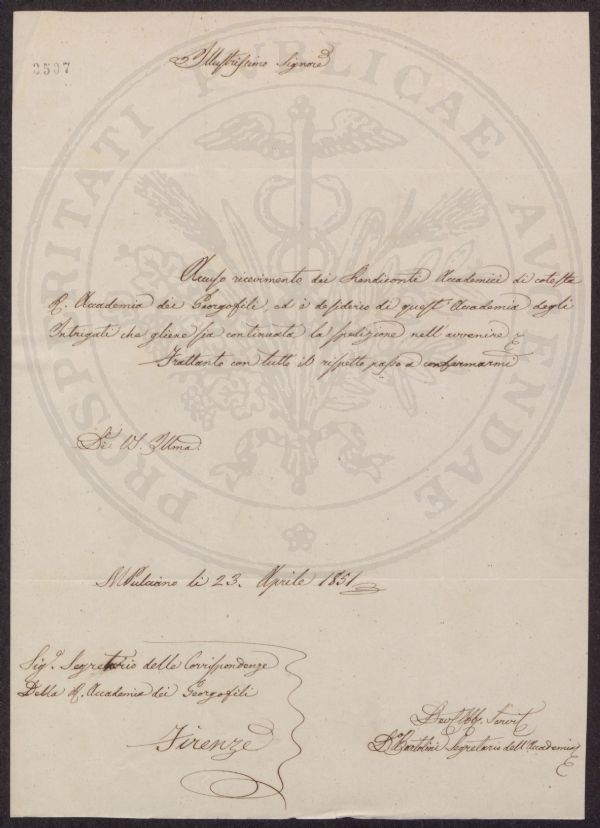 3507
Illustrissimo Signore
Accuso ricevimento dei Rendiconti Accademici di cotesta
R. Accademia dei Georgofili, ed è desiderio di quest'Accademia degli
Intrigati che gliene sia continuata la spedizione nell'avvenire
Frattanto con tutto il rispetto passo a confermarmi
Di VS. Illma.
MPulciano li 23. Aprile 1851
Sigr. Segretario delle Corrispondenze
Della R. Accademia dei Georgofili
Firenze
Devmo Obbl. Servre
Bartolini Segretario dell'Accademia
PROSPERITATI PUBLICAE AUGENDAE